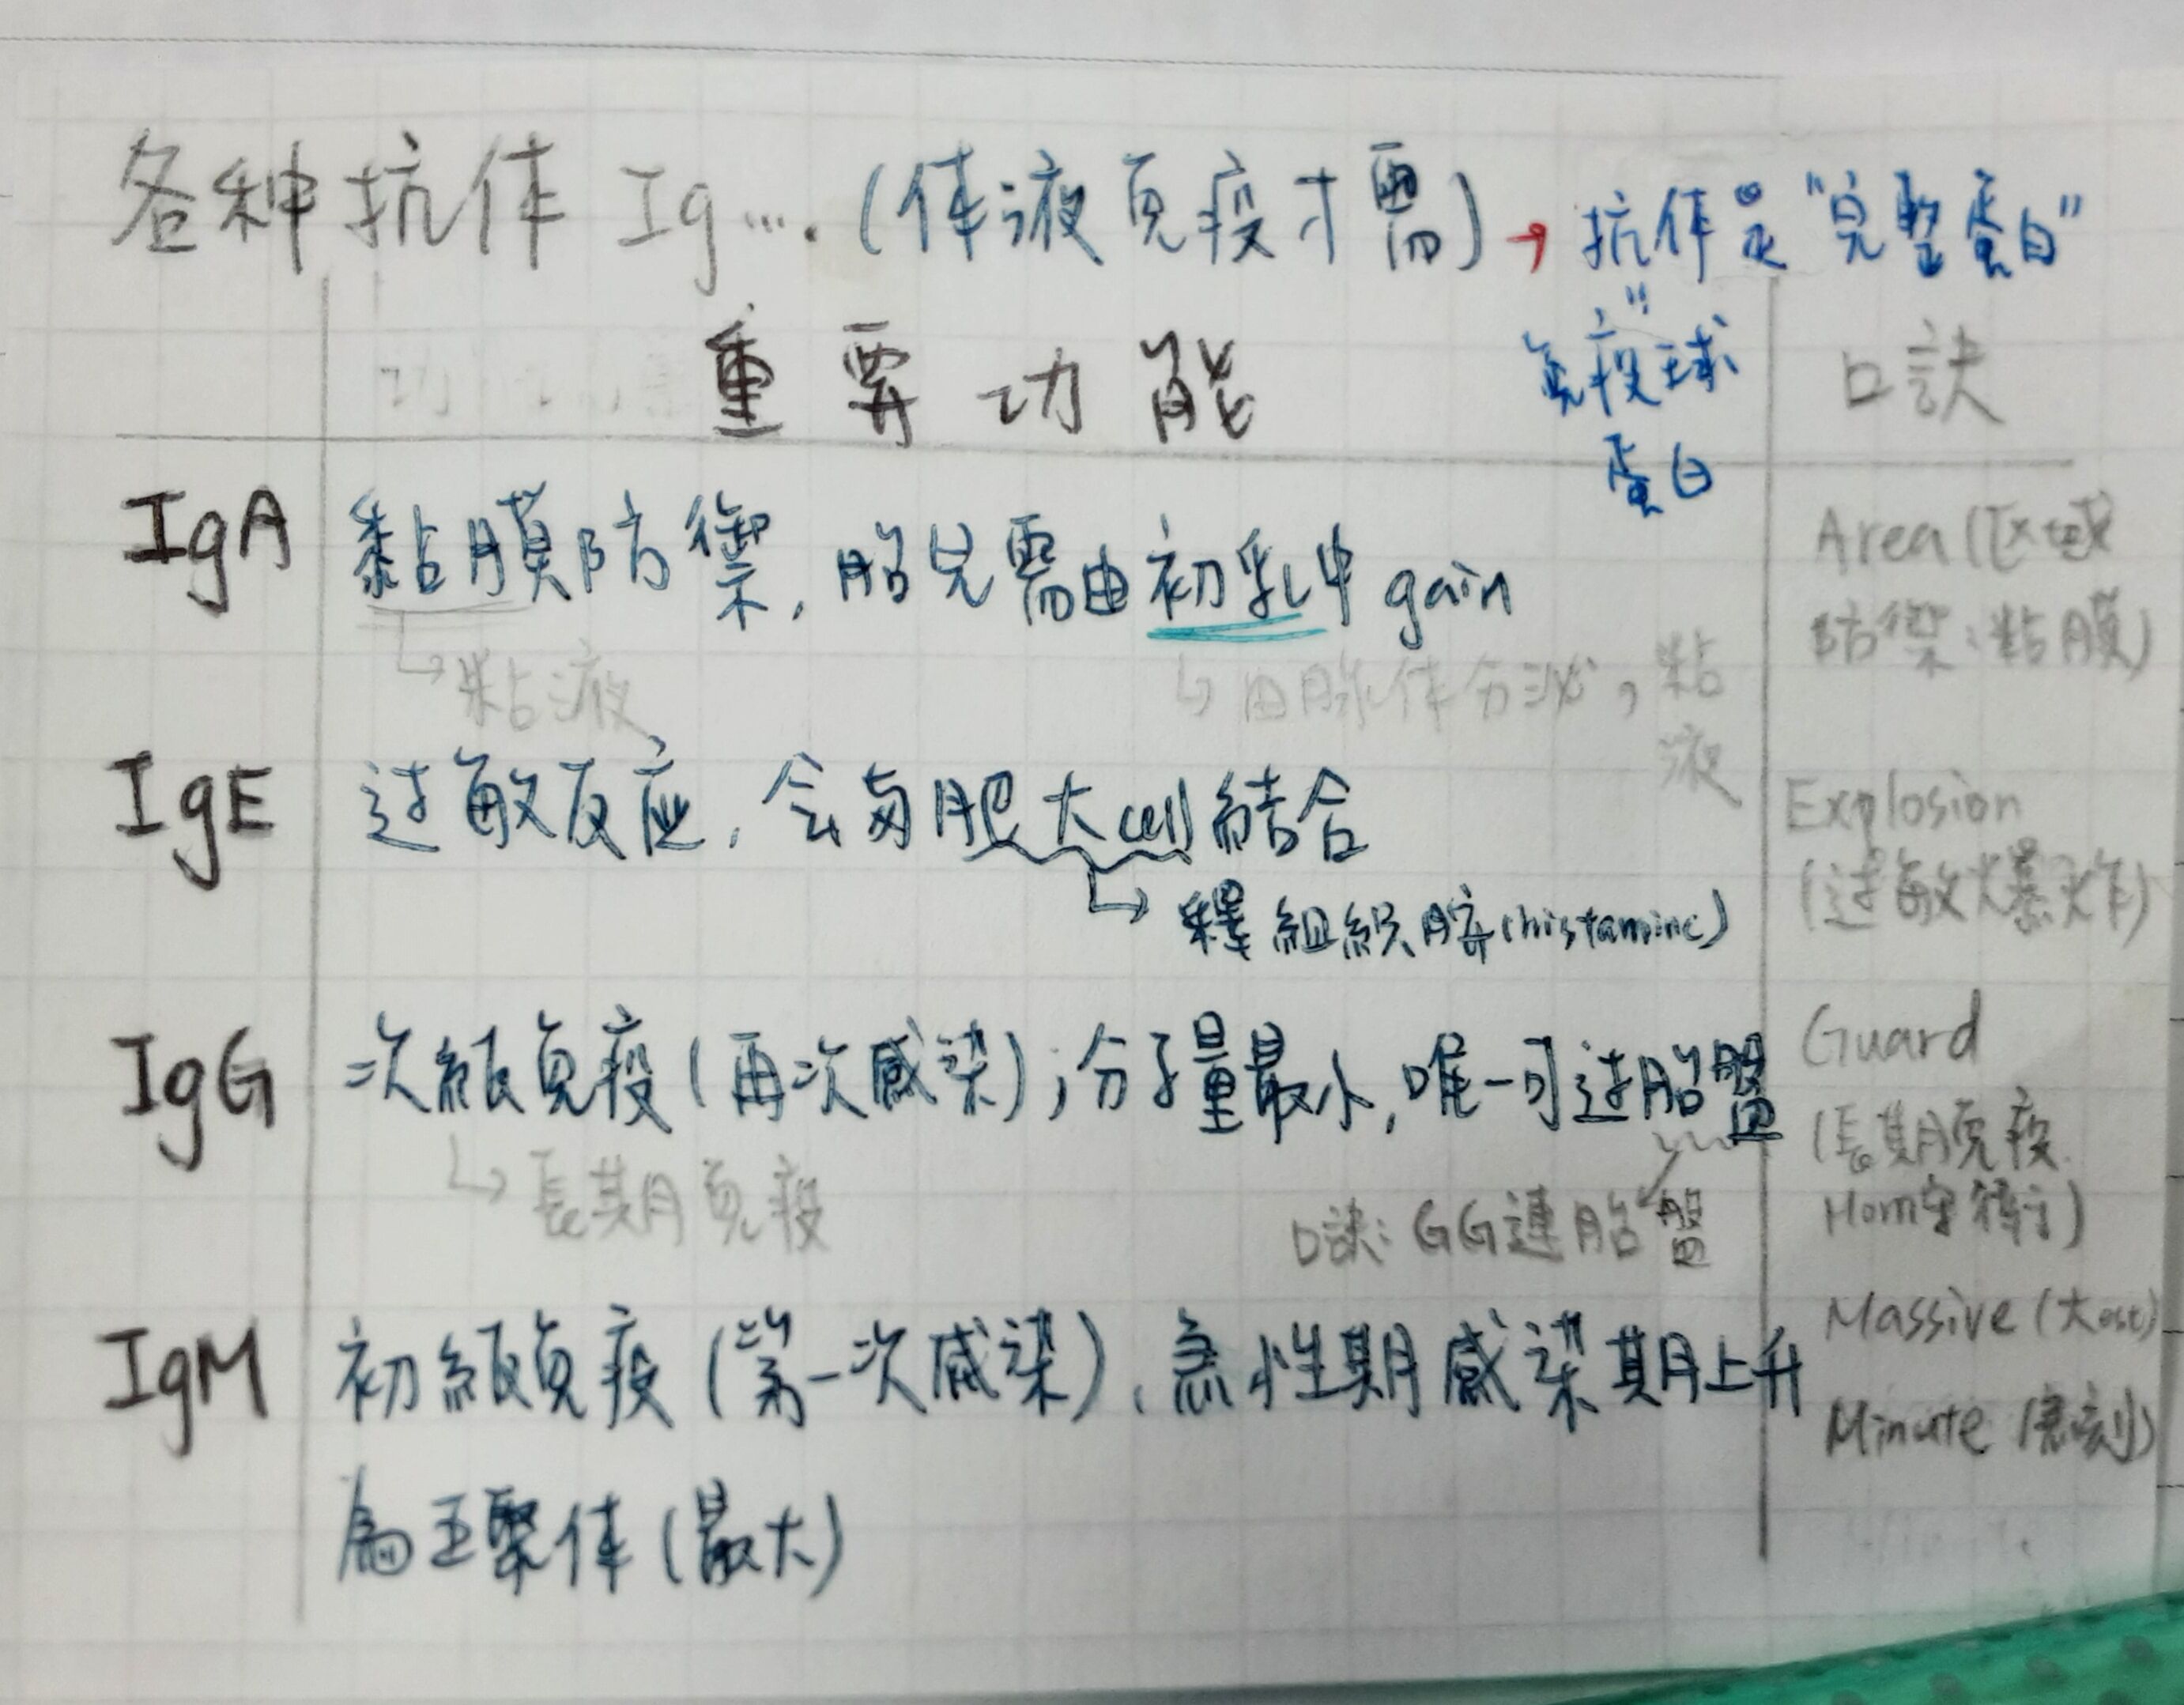 各种抗体 Ig.... (体液免疫才需) → 抗体是"完整蛋白"
"
免疫球
蛋白
重要功能
口訣
IgA
黏膜防禦, 胎兒需由初乳中 gain
↳ 粘液
↳ 由腺体分泌, 粘
液
Area (区域
防禦:粘膜)
IgE
过敏反应, 会与肥大cell結合
↳ 釋組織胺(histamine)
Explosion
(过敏爆炸)
IgG
次級免疫 (再次感染); 分子量最小, 唯一可过胎盤
↳ 長期免疫
口訣: GG連胎盤
Guard
(長期免疫
守衛)
IgM
初級免疫 (第一次感染), 急性期感染期上升
為五聚体 (最大)
Massive (大
Minute